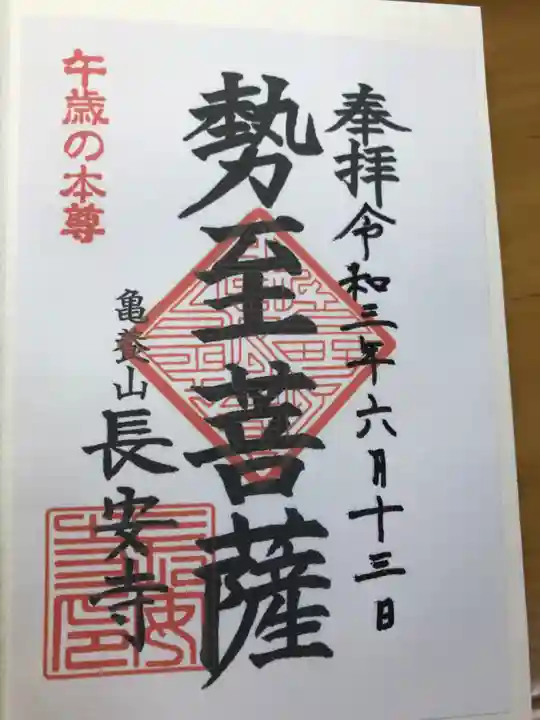 奉拝令和三年六月十三日
勢至菩薩
亀養山長安寺
午歳の本尊